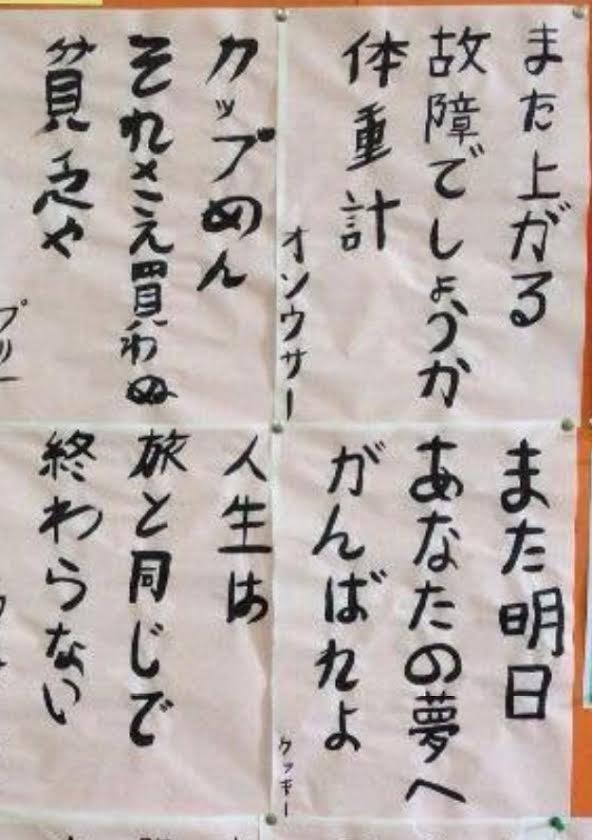 また上がる
故障でしょうか
体重計
オンウサー
カップめん
それさえ買わぬ
貧乏や
また明日
あなたの夢へ
がんばれよ
ケッキー
人生は
旅と同じで
終わらない